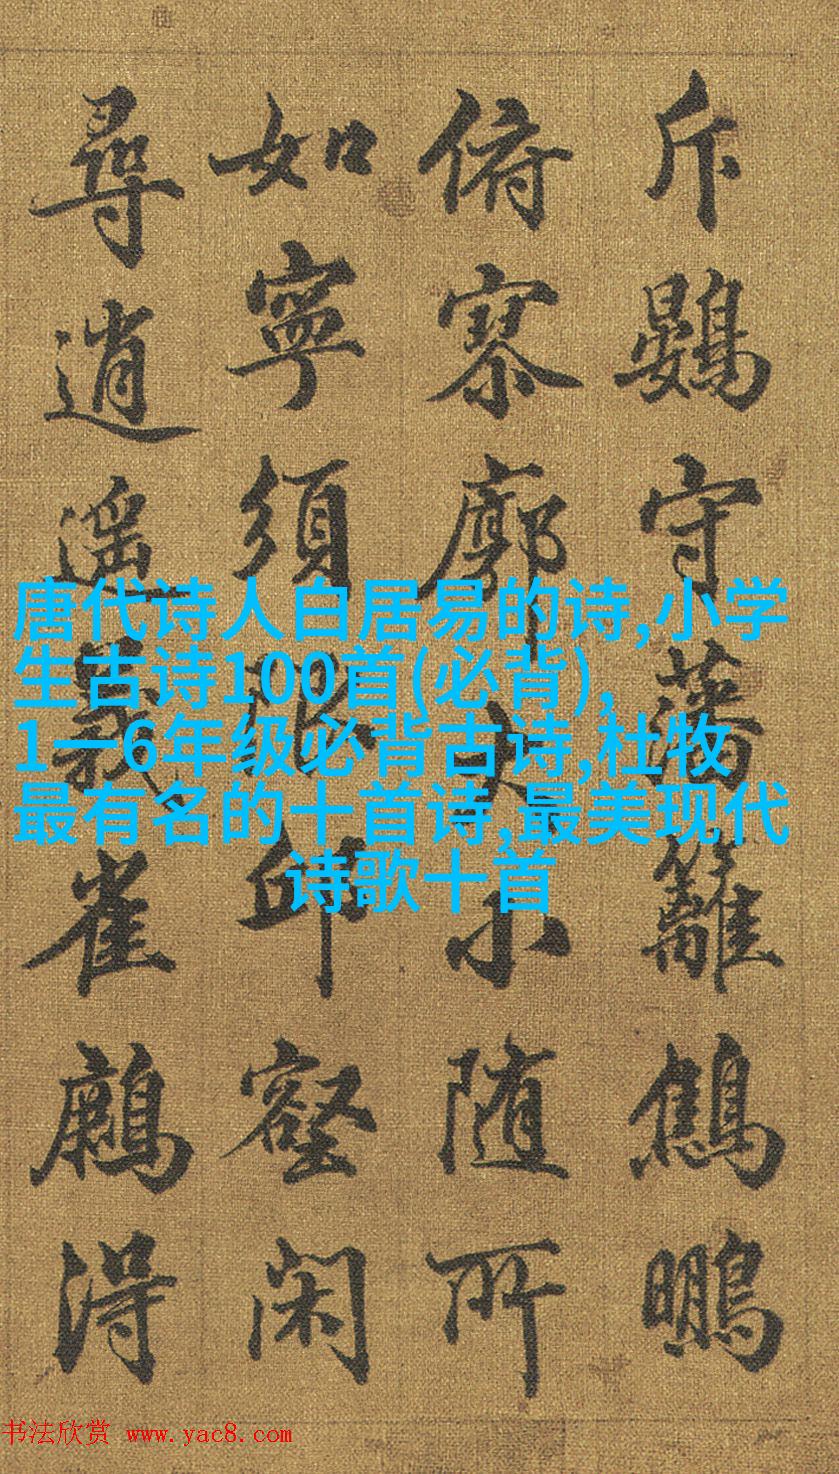 斥鷃守藩籬鷦鵬
俯寥廓大小随所
如寧須限邱壑闲
尋逍遥義雀得
唐代诗人白居易的诗,小学
生古诗100首(必背),
1一6年级必背古诗,杜牧
最有名的十首诗,最美现代
诗歌十首
书法欣赏 www.yac8.com